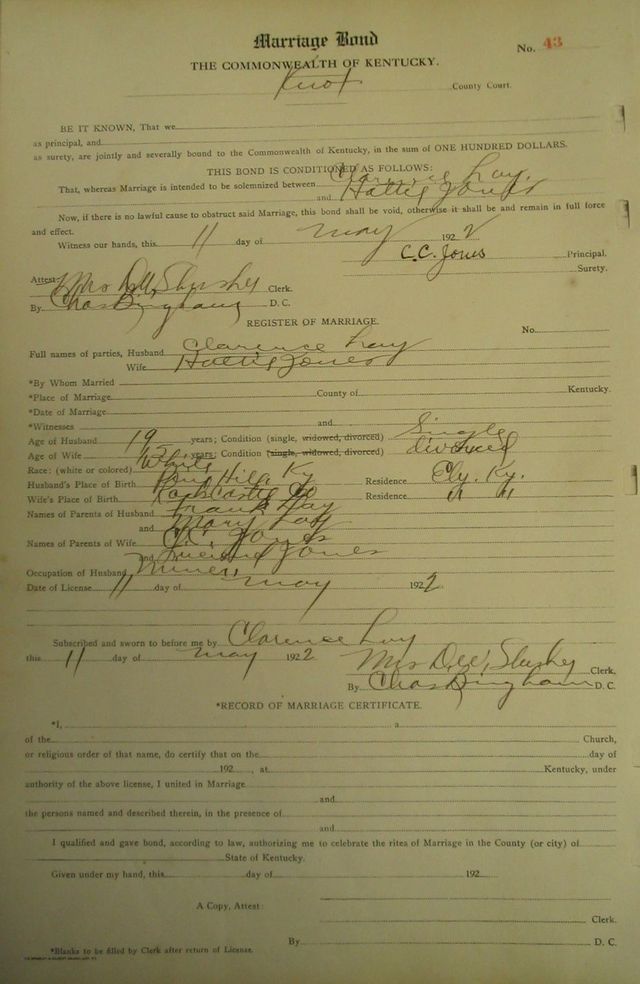 Marriage Bond
No. 43
THE COMMONWEALTH OF KENTUCKY.
Knox County Court.
BE IT KNOWN, That we
as principal, and
as surety, are jointly and severally bound to the Commonwealth of Kentucky, in the sum of ONE HUNDRED DOLLARS.
THIS BOND IS CONDITIONED AS FOLLOWS:
That, whereas Marriage is intended to be solemnized between Clarence Lay.
and Hattie Jones
Now, if there is no lawful cause to obstruct said Marriage, this bond shall be void, otherwise it shall be and remain in full force
and effect.
Witness our hands, this 11 day of May 1922
C.C. Jones Principal.
Surety.
Attest: Mrs Clerk.
By Chas Bingham D. C.
REGISTER OF MARRIAGE.
No.
Full names of parties, Husband Clarence Lay
Wife Hattie Jones
*By Whom Married
*Place of Marriage County of Kentucky.
*Date of Marriage
*Witnesses and
Age of Husband 19 years; Condition (single, widowed, divorced) Single
Age of Wife years; Condition (single, widowed, divorced) divorced
Race: (white or colored) White
Husband's Place of Birth Ky Residence Ely. Ky.
Wife's Place of Birth Rockcastle Co Residence " "
Names of Parents of Husband Frank Lay
and Mary Lay
Names of Parents of Wife C.C. Jones
and Jones
Occupation of Husband Miner
Date of License 11 day of May 1922
Subscribed and sworn to before me by Clarence Lay
this 11 day of May 1922
Mrs Clerk.
By Chas Bingham D. C.
*RECORD OF MARRIAGE CERTIFICATE.
*I, a
of the Church,
or religious order of that name, do certify that on the day of
192 , at Kentucky, under
authority of the above license, I united in Marriage
and
the persons named and described therein, in the presence of
and
I qualified and gave bond, according to law, authorizing me to celebrate the rites of Marriage in the County (or city) of
State of Kentucky.
Given under my hand, this day of 192
A Copy, Attest:
Clerk.
By D. C.
*Blanks to be filled by Clerk after return of License.